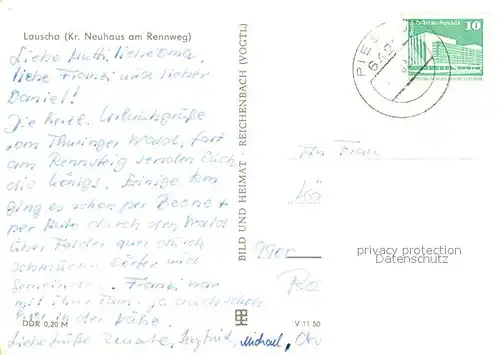 Lauscha (Kr. Neuhaus am Rennweg)
Liebe Mutti, liebe Oma,
liebe Franzi und lieber
Daniel!
Die herzl. Urlaubsgrüße
vom Thüringer Wald, fast
am Rennsteig senden Euch
die Königs. Einige km
ging es schon per Beene +
per Auto durch den Wald
über Felder quer durch
schmucke Dörfer und
Gemeinden. Franzi war
mit ihrer Fam. ja auch schon
hier in der Nähe.
Liebe Grüße Renate, Siegfried, Michael,
DDR 0,20 M
BILD UND HEIMAT · REICHENBACH (VOGTL)
V 11 50
10
An Frau
privacy protection
Datenschutz